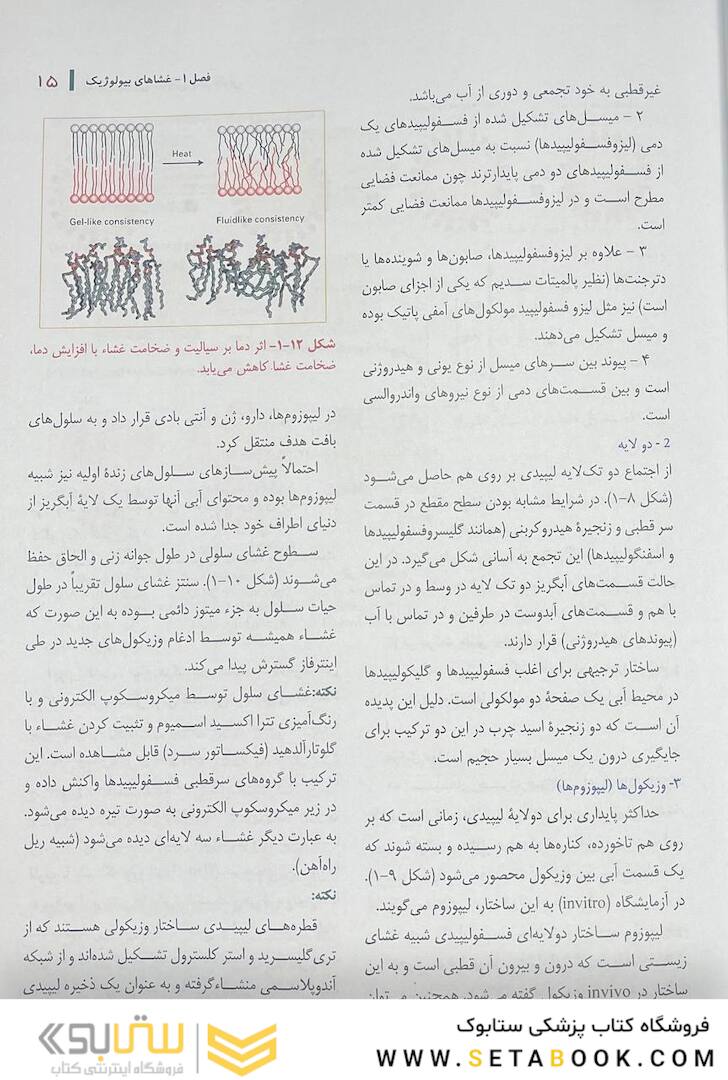 فصل ۱- غشاهای بیولوژیک ۱۵
غیرقطبی به خود تجمعی و دوری از آب می‌باشد.
۲ - میسل‌های تشکیل شده از فسفولیپیدهای یک
دمی (لیزوفسفولیپیدها) نسبت به میسل‌های تشکیل شده
از فسفولیپیدهای دو دمی پایدارترند چون ممانعت فضایی
مطرح است و در لیزوفسفولیپیدها ممانعت فضایی کمتر
است.
۳ - علاوه بر لیزوفسفولیپیدها، صابون‌ها و شوینده‌ها یا
دترجنت‌ها (نظیر پالمیتات سدیم که یکی از اجزای صابون
است) نیز مثل لیزو فسفولیپید مولکول‌های آمفی پاتیک بوده
و میسل تشکیل می‌دهند.
۴ - پیوند بین سرهای میسل از نوع یونی و هیدروژنی
است و بین قسمت‌های دمی از نوع نیروهای واندروالسی
است.
2 - دو لایه
از اجتماع دو تک‌لایه لیپیدی بر روی هم حاصل می‌شود
(شکل ۸-۱). در شرایط مشابه بودن سطح مقطع در قسمت
سر قطبی و زنجیرهٔ هیدروکربنی (همانند گلیسروفسفولیپیدها
و اسفنگولیپیدها) این تجمع به آسانی شکل می‌گیرد. در این
حالت قسمت‌های آبگریز دو تک لایه در وسط و در تماس
با هم و قسمت‌های آبدوست در طرفین و در تماس با آب
(پیوندهای هیدروژنی) قرار دارند.
ساختار ترجیهی برای اغلب فسفولیپیدها و گلیکولیپیدها
در محیط آبی یک صفحهٔ دو مولکولی است. دلیل این پدیده
آن است که دو زنجیرهٔ اسید چرب در این دو ترکیب برای
جایگیری درون یک میسل بسیار حجیم است.
۳- وزیکول‌ها (لیپوزوم‌ها)
حداکثر پایداری برای دولایهٔ لیپیدی، زمانی است که بر
روی هم تاخورده، کناره‌ها به هم رسیده و بسته شوند که
یک قسمت آبی بین وزیکول محصور می‌شود (شکل ۹-۱).
در آزمایشگاه (invitro) به این ساختار، لیپوزوم می‌گویند.
لیپوزوم ساختار دولایه‌ای فسفولیپیدی شبیه غشای
زیستی است که درون و بیرون آن قطبی است و به این
ساختار در invivo وزیکول گفته می‌شود. همچنین می‌توان
Heat
Gel-like consistency
Fluidlike consistency
شکل ۱۲-۱- اثر دما بر سیالیت و ضخامت غشاء با افزایش دما،
ضخامت غشا کاهش می‌یابد.
در لیپوزوم‌ها، دارو، ژن و آنتی بادی قرار داد و به سلول‌های
بافت هدف منتقل کرد.
احتمالاً پیش‌سازهای سلول‌های زندهٔ اولیه نیز شبیه
لیپوزوم‌ها بوده و محتوای آبی آنها توسط یک لایهٔ آبگریز از
دنیای اطراف خود جدا شده است.
سطوح غشای سلولی در طول جوانه زنی و الحاق حفظ
می‌شوند (شکل ۱۰-۱). سنتز غشای سلول تقریباً در طول
حیات سلول به جزء میتوز دائمی بوده به این صورت که
غشاء همیشه توسط ادغام وزیکول‌های جدید در طی
اینترفاز گسترش پیدا می‌کند.
نکته: غشای سلول توسط میکروسکوپ الکترونی و با
رنگ‌آمیزی تترا اکسید اسمیوم و تثبیت کردن غشاء با
گلوتارآلدهید (فیکساتور سرد) قابل مشاهده است. این
ترکیب با گروه‌های سرقطبی فسفولیپیدها واکنش داده و
در زیر میکروسکوپ الکترونی به صورت تیره دیده می‌شود.
به عبارت دیگر غشاء سه لایه‌ای دیده می‌شود (شبیه ریل
راه‌آهن).
نکته:
قطره‌های لیپیدی ساختار وزیکولی هستند که از
تری‌گلیسرید و استر کلسترول تشکیل شده‌اند و از شبکه
آندوپلاسمی منشاءگرفته و به عنوان یک ذخیره لیپیدی
فروشگاه کتاب پزشکی ستابوک
WWW.SETABOOK.COM
ستابوک
فروشگاه اینترنتی کتاب